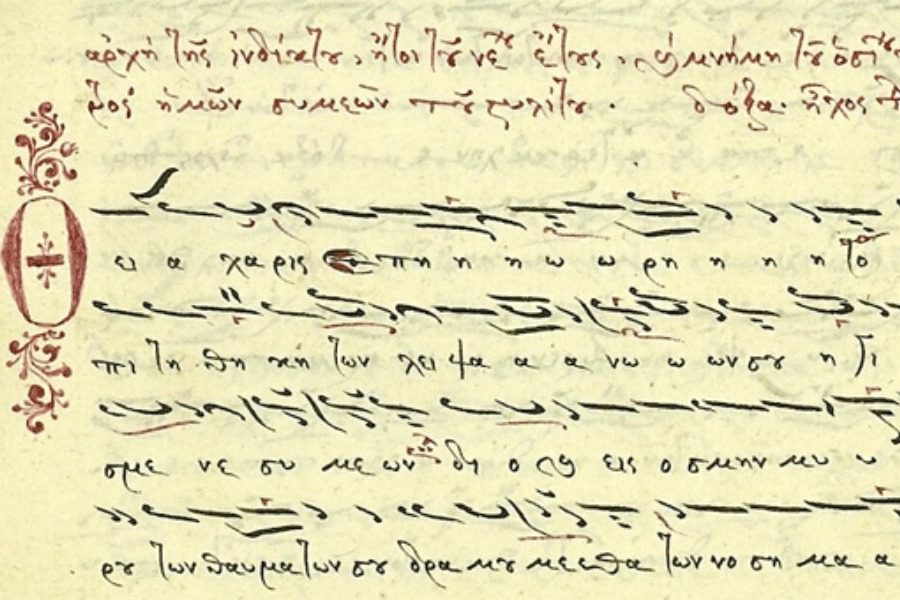 ἀρχὴ τῆς ἰνδίκτου, ἤτοι τοῦ νέου ἔτους, καὶ μνήμη τοῦ ὁσίου
ἡμῶν συμεὼν τοῦ στυλίτου. δόξα. ἦχος
Θ ει α χα ρις πη η η ω ω ρη η η η η το
πι τη θη κη των λει ψα α α νω ω ων σου η γι
σμε νε συ με ων δι ο και εις ο σμην μυ υ
ρου των θαυ μα των σου δρα μου με ε θα των νο ση μα α